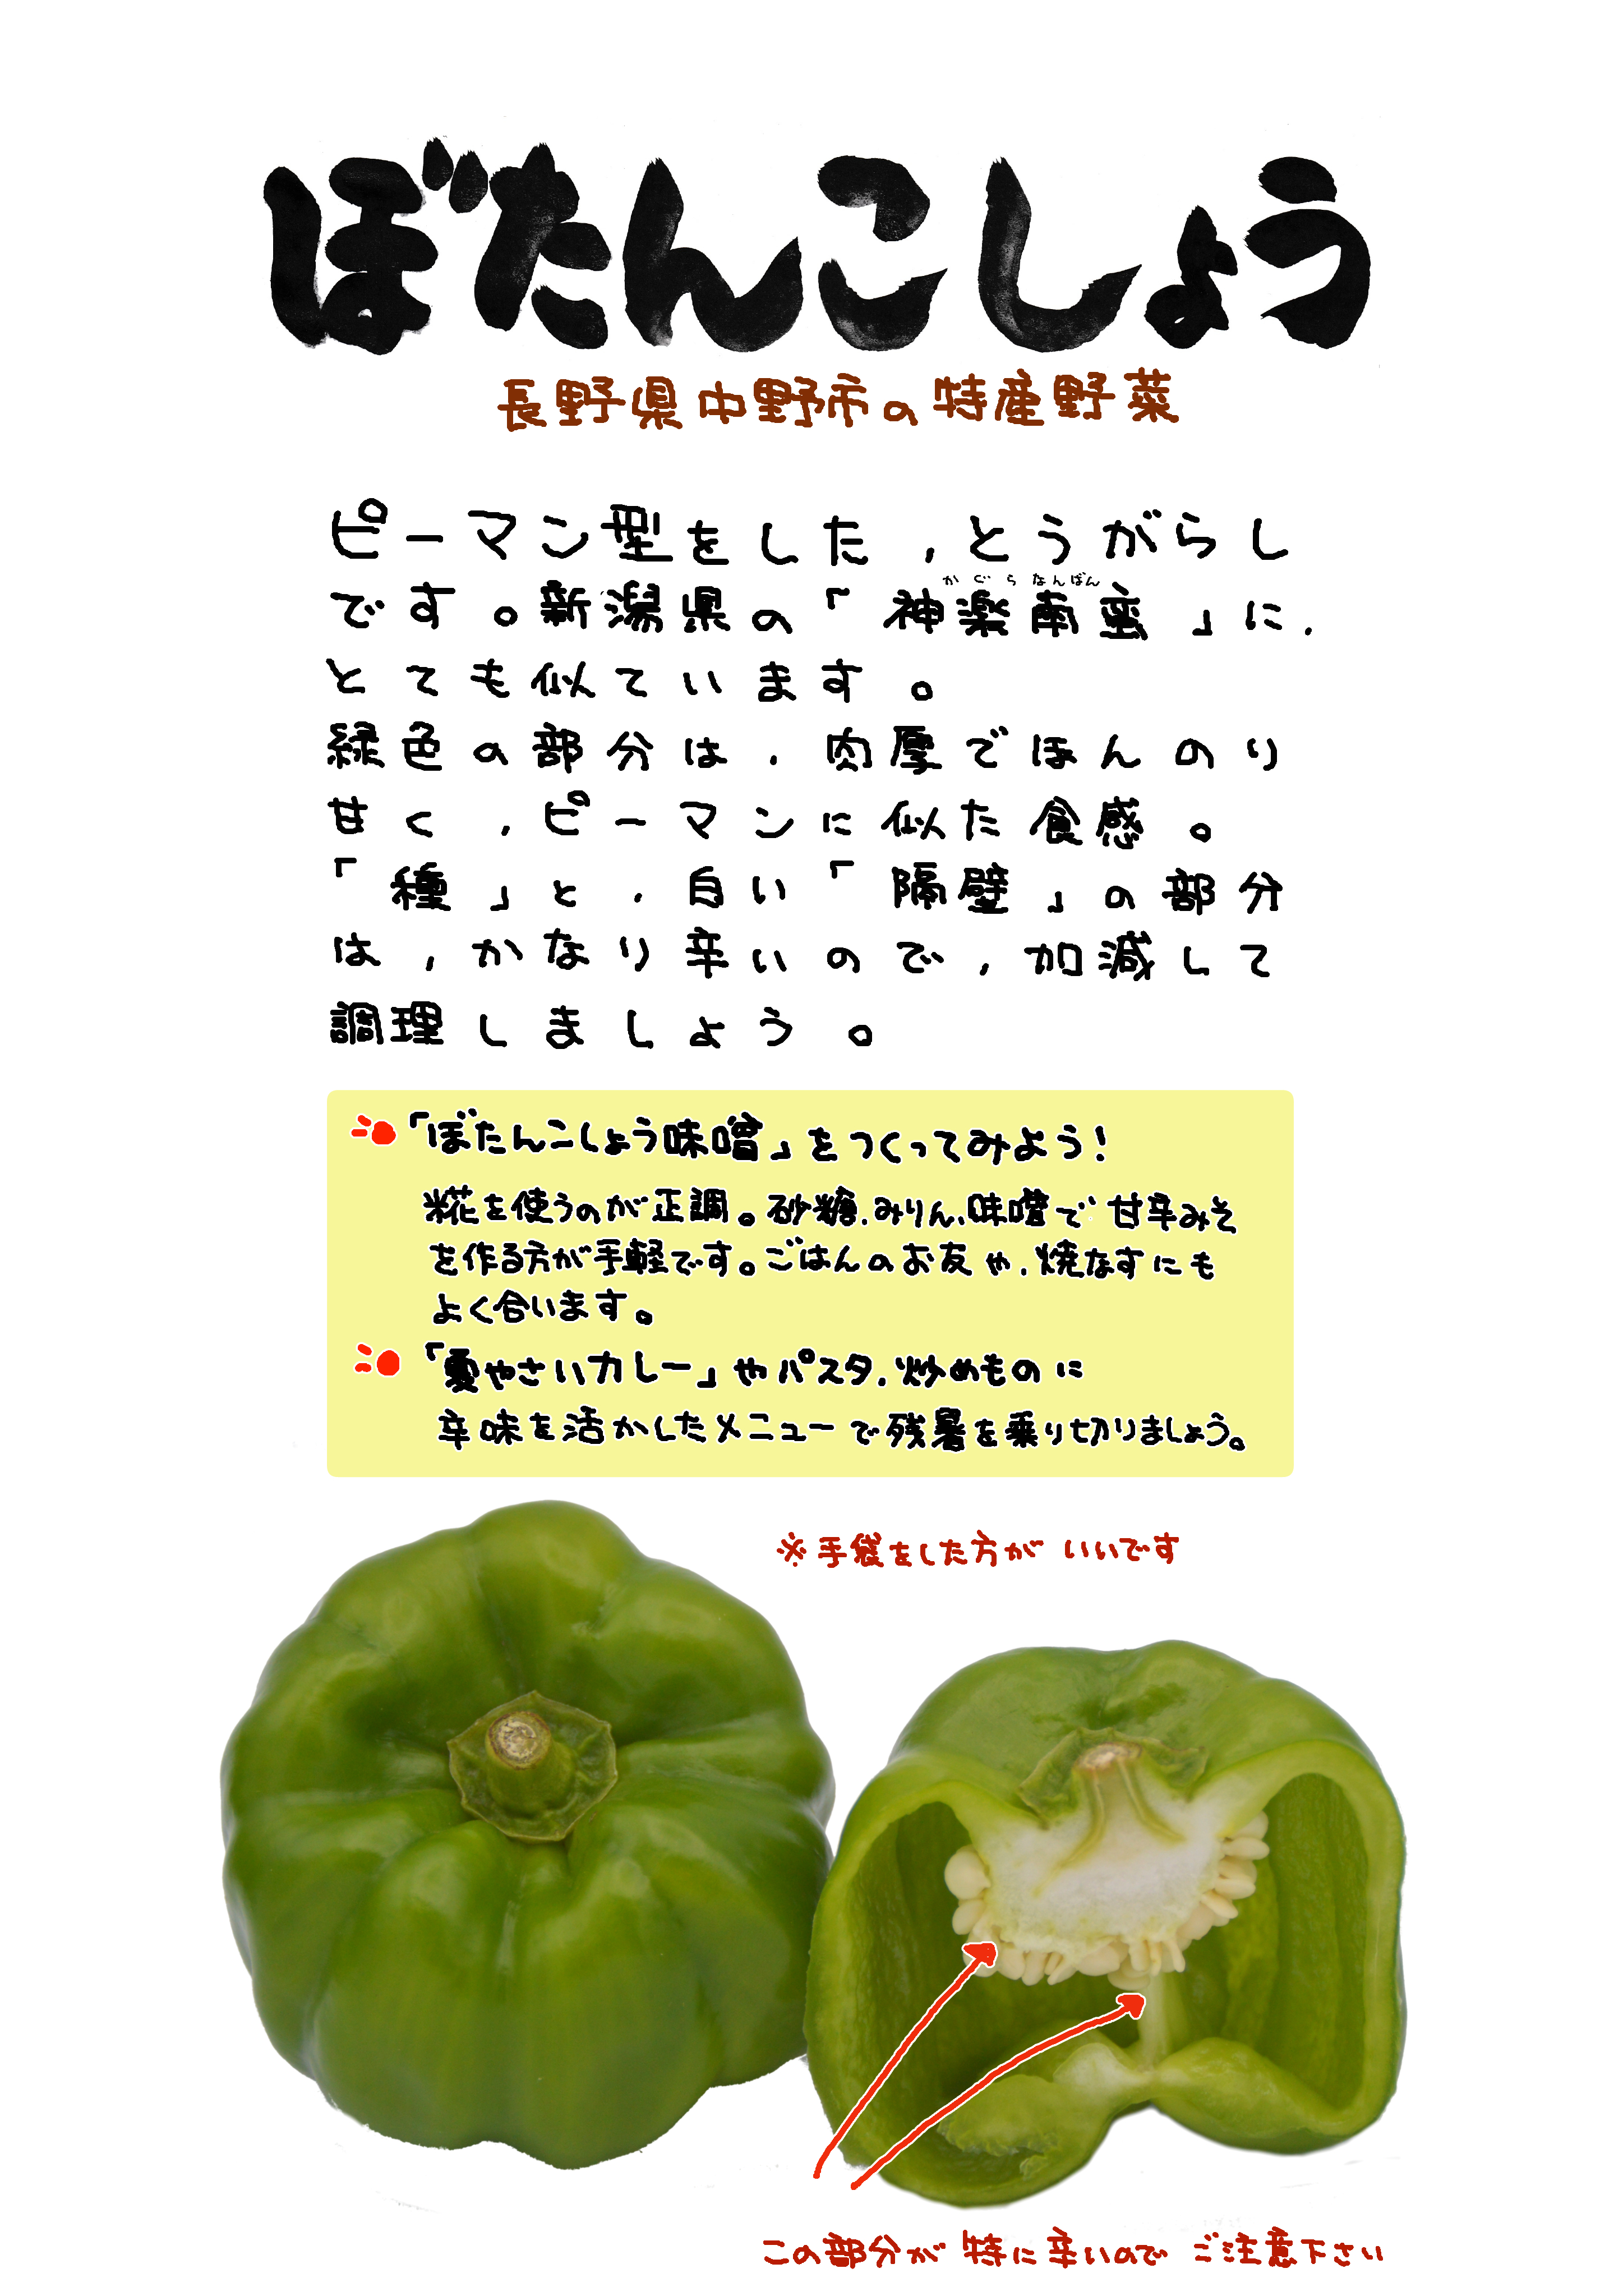 ぼたんこしょう
長野県中野市の特産野菜
ピーマン型をした，とうがらし
です。新潟県の「神楽南蛮」に，
かぐらなんばん
とても似ています。
緑色の部分は，肉厚でほんのり
甘く，ピーマンに似た食感。
「種」と，白い「隔壁」の部分
は，かなり辛いので，加減して
調理しましょう。
「ぼたんこしょう味噌」をつくってみよう！
糀を使うのが正調。砂糖，みりん，味噌で甘辛みそ
を作る方が手軽です。ごはんのお友や，焼なすにも
よく合います。
「夏やさいカレー」やパスタ，炒めものに
辛味を活かしたメニューで残暑を乗り切りましょう。
※手袋をした方がいいです
この部分が特に辛いのでご注意下さい